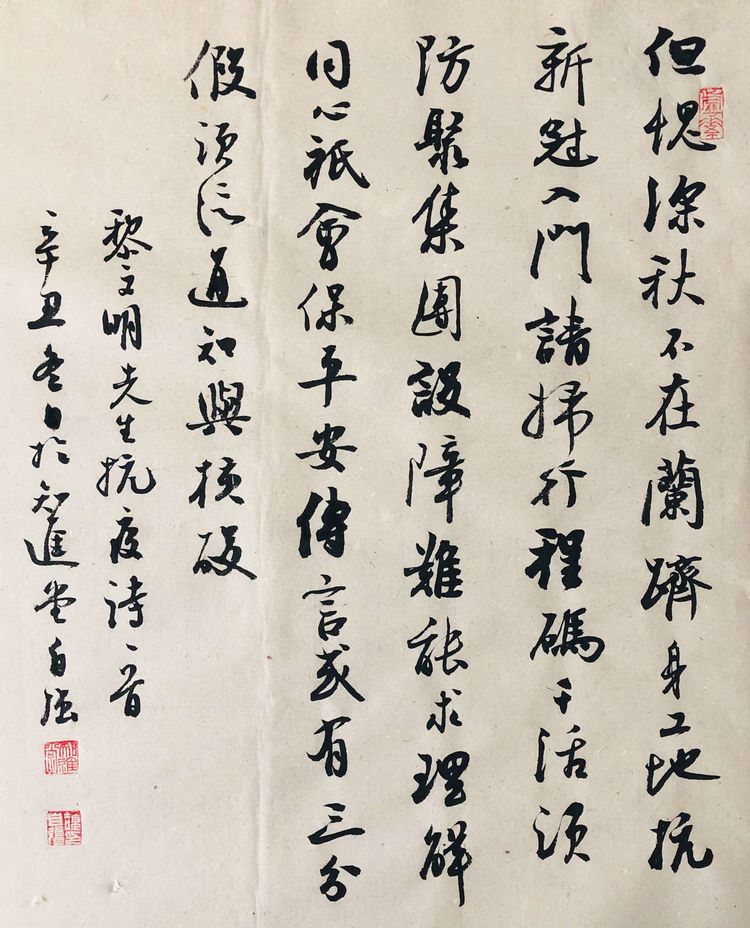 但愧深秋不在蘭躋身工地抗
新冠入門請掃行程碼干活須
防聚集團設障難能求理解
同心祇會保平安傳言或有三分
假須信通知與核酸
黎文明先生抗疫詩一首
辛丑冬日於知進堂自強